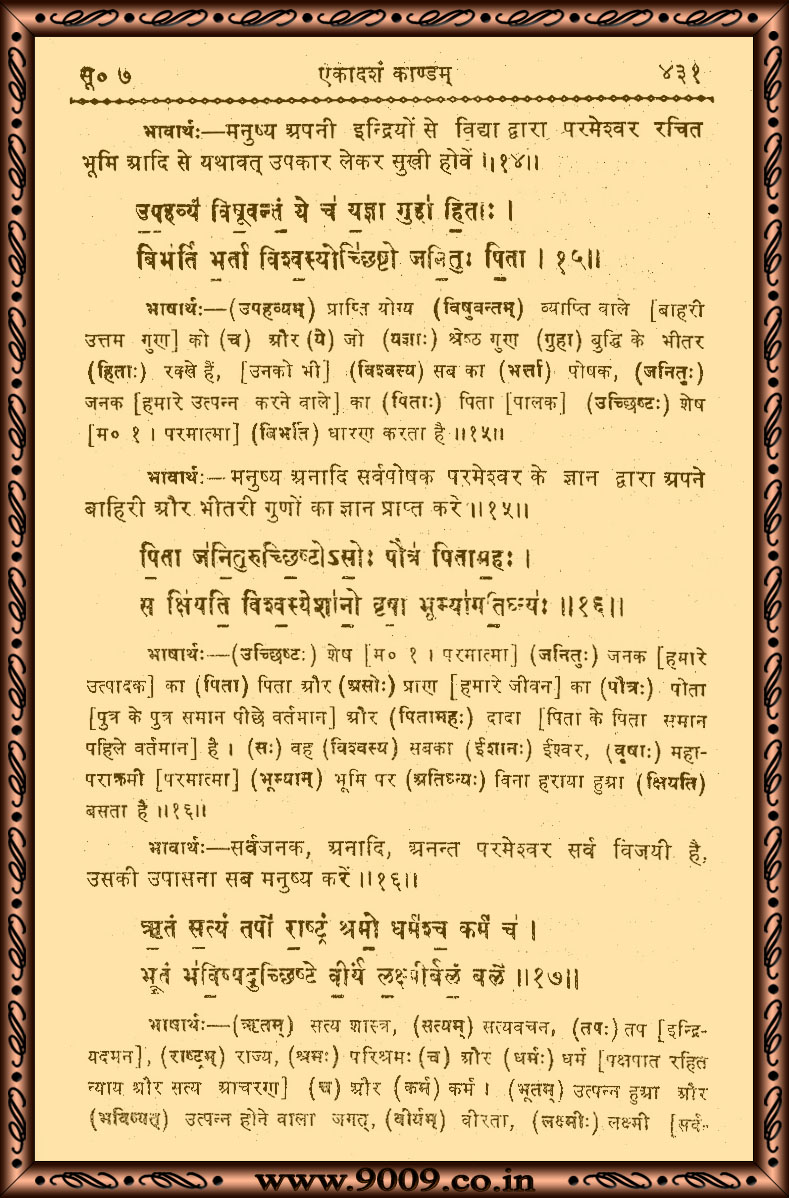 सू० ७ एकादशं काण्डम् ४३१
भावार्थः—मनुष्य अपनी इन्द्रियों से विद्या द्वारा परमेश्वर रचित
भूमि आदि से यथावत् उपकार लेकर सुखी होवें ॥१४॥
उ॒प॒हव्यं॑ विषू॒वन्तं॒ ये च॑ य॒ज्ञा गुहा॑ हि॒ताः ।
बिभ॑र्ति भ॒र्ता विश्व॒स्योच्छि॑ष्टो जनि॒तुः पि॒ता । १५॥
भाषार्थः—(उपहव्यम्) प्राप्ति योग्य (विषुवन्तम्) व्याप्ति वाले [बाहरी
उत्तम गुण] को (च) और (ये) जो (यज्ञाः) श्रेष्ठ गुण (गुहा) बुद्धि के भीतर
(हिताः) रक्खे हैं, [उनको भी] (विश्वस्य) सब का (भर्त्ता) पोषक, (जनितुः)
जनक [हमारे उत्पन्न करने वाले] का (पिताः) पिता [पालक] (उच्छिष्टः) शेष
[म० १ । परमात्मा] (बिभर्ति) धारण करता है ॥१५॥
भावार्थः—मनुष्य अनादि सर्वपोषक परमेश्वर के ज्ञान द्वारा अपने
बाहिरी और भीतरी गुणों का ज्ञान प्राप्त करे ॥१५॥
पि॒ता ज॑नि॒तुरुच्छि॒ष्टोऽसोः॒ पौत्रः॑ पिताम॒हः ।
स क्षि॑यति॒ विश्व॒स्येशा॑नो॒ वृषा॒ भूम्या॑मति॒घ्न्यः॑ ॥१६॥
भाषार्थः—(उच्छिष्टः) शेष [म० १ । परमात्मा] (जनितुः) जनक [हमारे
उत्पादक] का (पिता) पिता और (असोः) प्राण [हमारे जीवन] का (पौत्रः) पोता
[पुत्र के पुत्र समान पीछे वर्तमान] और (पितामहः) दादा [पिता के पिता समान
पहिले वर्तमान] है । (सः) वह (विश्वस्य) सबका (ईशानः) ईश्वर, (वृषाः) महा-
पराक्रमी [परमात्मा] (भूम्याम्) भूमि पर (अतिघ्न्यः) विना हराया हुआ (क्षियति)
बसता है ॥१६॥
भावार्थः—सर्वजनक, अनादि, अनन्त परमेश्वर सर्व विजयी है,
उसकी उपासना सब मनुष्य करें ॥१६॥
ऋ॒तं स॒त्यं तपो॑ रा॒ष्ट्रं श्रमो॒ धर्म॑श्च॒ कर्म॑ च॑ ।
भू॒तं भ॑वि॒ष्यदुच्छि॑ष्टे वी॒र्यं॑ ल॒क्ष्मीर्बलं॒ बले॑ ॥१७॥
भाषार्थः—(ऋतम्) सत्य शास्त्र, (सत्यम्) सत्यवचन, (तपः) तप [इन्द्रि-
यदमन], (राष्ट्रम्) राज्य, (श्रमः) परिश्रमः (च) और (धर्मः) धर्म [पक्षपात रहित
न्याय और सत्य आचरण] (च) और (कर्म) कर्म । (भूतम्) उत्पन्न हुआ और
(भविष्यत्) उत्पन्न होने वाला जगत्, (वीर्यम्) वीरता, (लक्ष्मीः) लक्ष्मी [सर्व-
www.9009.co.in